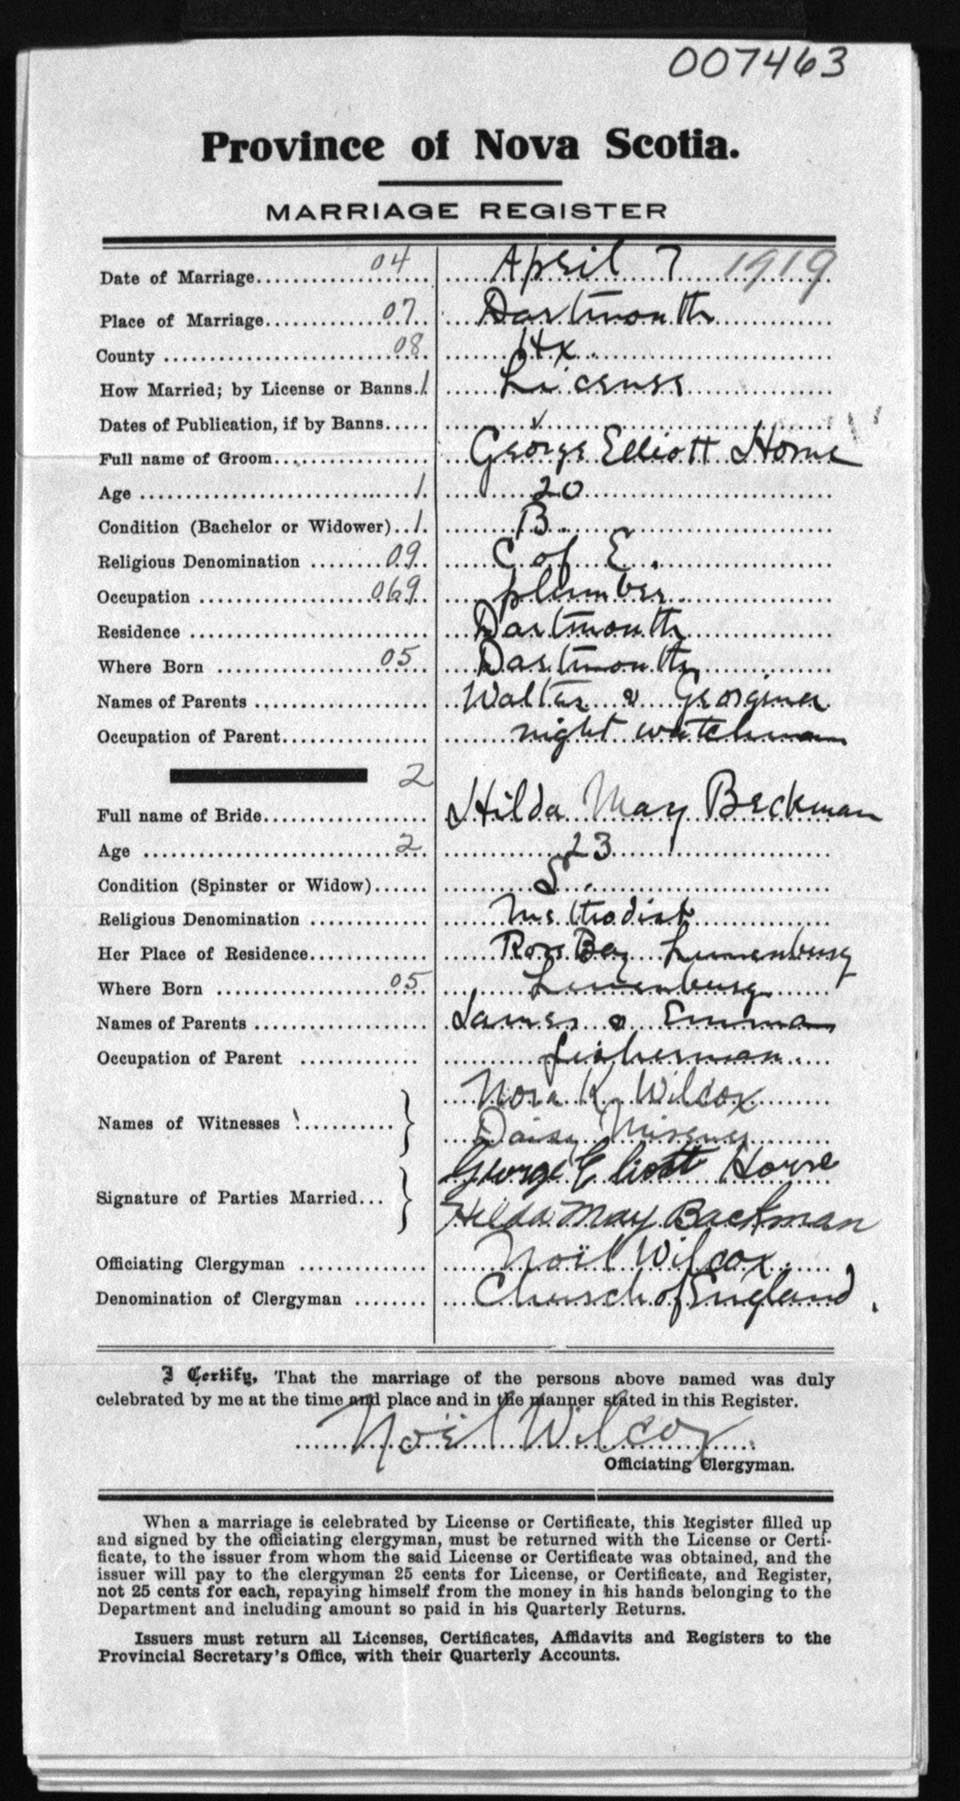 007463
Province of Nova Scotia.
MARRIAGE REGISTER
Date of Marriage 04 April 7 1919
Place of Marriage 07 Dartmouth
County 08 Hx.
How Married; by License or Banns 1 License
Dates of Publication, if by Banns
Full name of Groom George Elliott Horne
Age 1 20
Condition (Bachelor or Widower) 1 B.
Religious Denomination 09 C of E.
Occupation 069 plumber
Residence Dartmouth
Where Born 05 Dartmouth
Names of Parents Walter & Georgina
Occupation of Parent night watchman
2
Full name of Bride Hilda May Beckman
Age 2 23
Condition (Spinster or Widow) S.
Religious Denomination Methodist
Her Place of Residence Rose Bay Lunenburg
Where Born 05 Lunenburg
Names of Parents James & Emma
Occupation of Parent fisherman.
Nora K. Wilcox
Names of Witnesses
Daisy
George Eliott Horne
Signature of Parties Married...
Hilda May Backman
Officiating Clergyman Noël Wilcox.
Denomination of Clergyman Church of England.
I Certify, That the marriage of the persons above named was duly
celebrated by me at the time and place and in the manner stated in this Register.
Noël Wilcox
Officiating Clergyman.
When a marriage is celebrated by License or Certificate, this Register filled up
and signed by the officiating clergyman, must be returned with the License or Certi-
ficate, to the issuer from whom the said License or Certificate was obtained, and the
issuer will pay to the clergyman 25 cents for License, or Certificate, and Register,
not 25 cents for each, repaying himself from the money in his hands belonging to the
Department and including amount so paid in his Quarterly Returns.
Issuers must return all Licenses, Certificates, Affidavits and Registers to the
Provincial Secretary's Office, with their Quarterly Accounts.